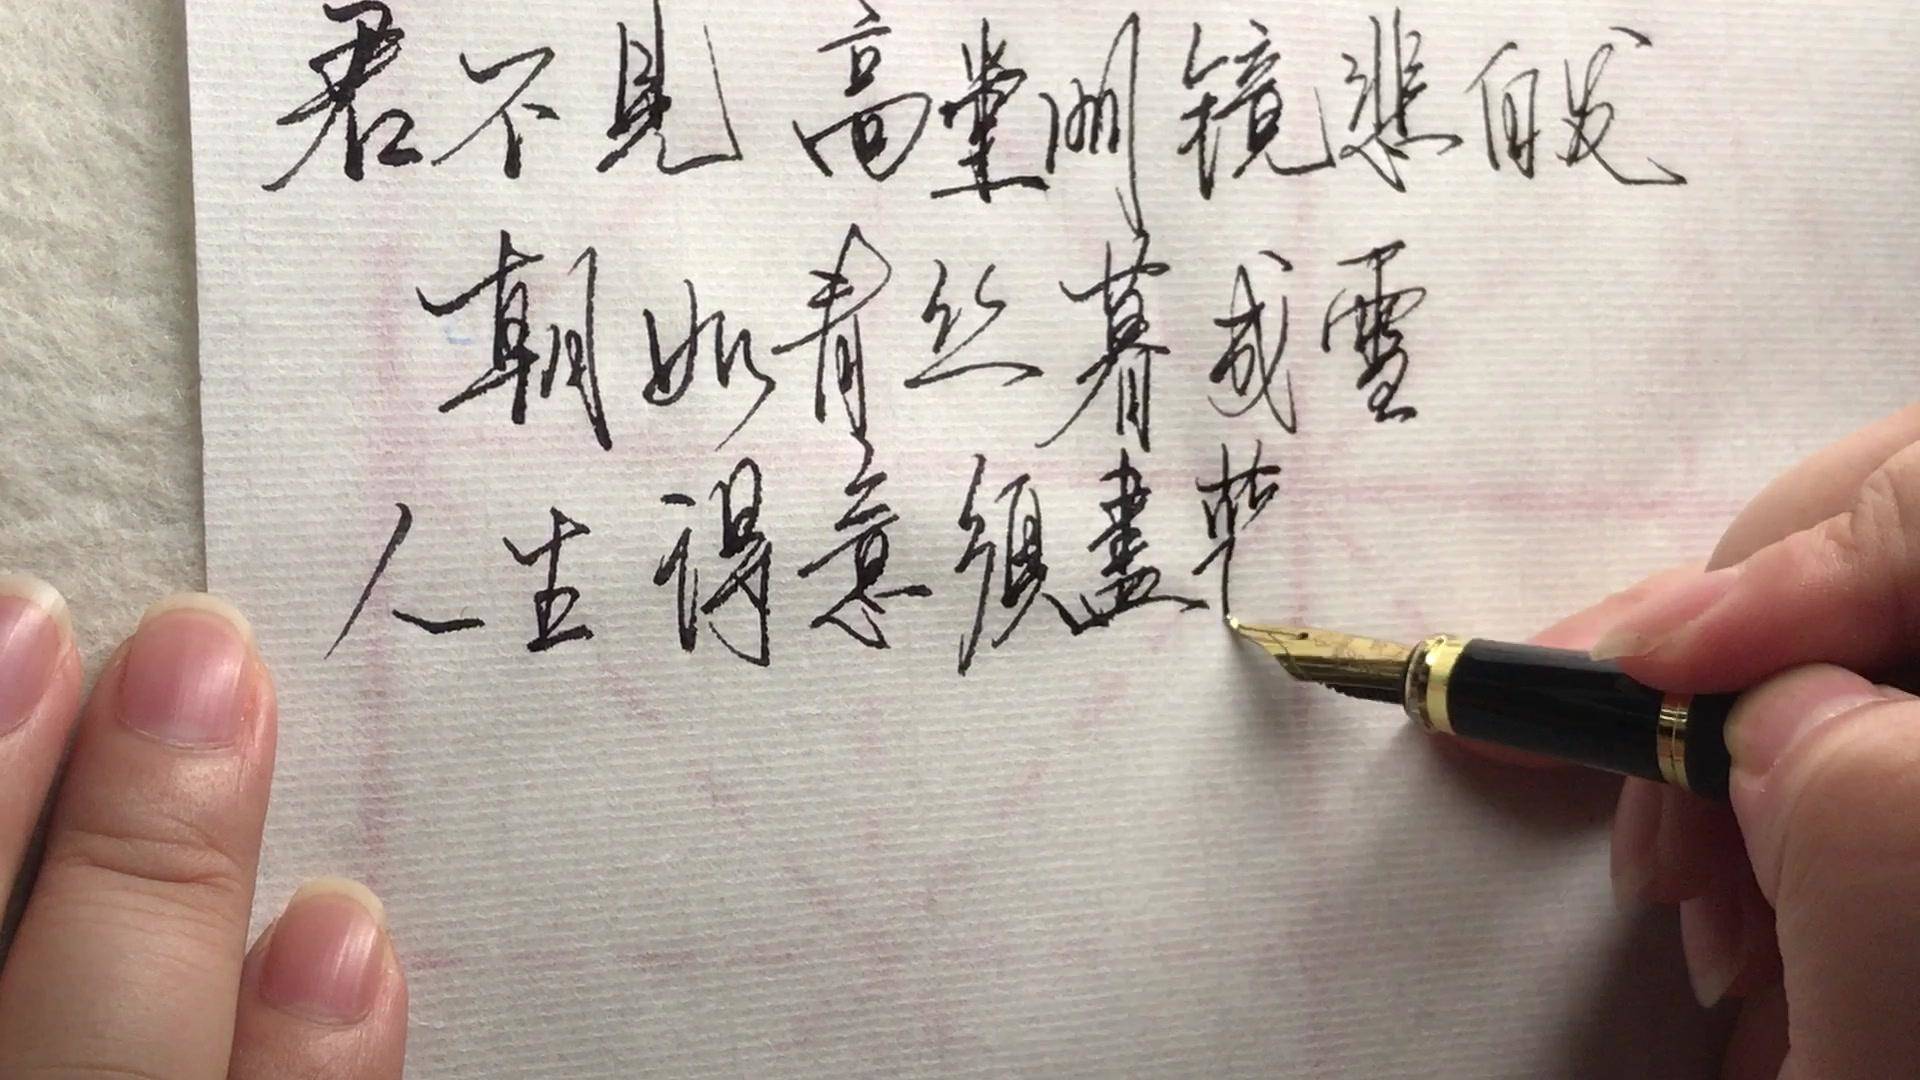 君不見高堂明镜悲白发
朝如青丝暮成雪
人生得意須盡